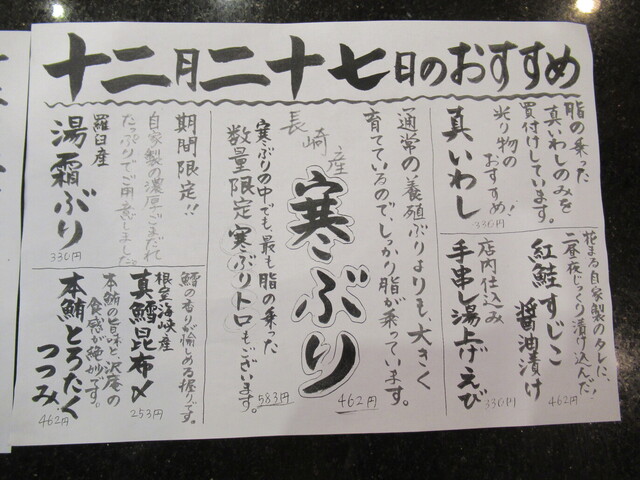 十二月二十七日のおすすめ
脂の乗った
真いわしのみを
買付けしています。
光り物の
おすすめ!
真いわし
330円
花まる自家製のタレに、
二昼夜じっくり漬け込んだ!
紅鮭すじこ
醤油漬け
462円
店内仕込み
手串し湯上げえび
330円
通常の養殖ぶりよりも、大きく
育てているので、しっかり脂が乗っています。
長崎産
寒ぶり
462円
寒ぶりの中でも、最も脂の乗った
数量限定寒ぶりトロもございます。
583円
期間限定!!
自家製の濃厚ごまだれ
たっぷりでご用意しました。
羅臼産
湯霜ぶり
330円
鱈の香りが愉しめる握りです。
根室海峡産
真鱈昆布〆
253円
本鮪の旨味と、沢庵の
食感が絶妙です。
本鮪とろたく
つつみ
462円